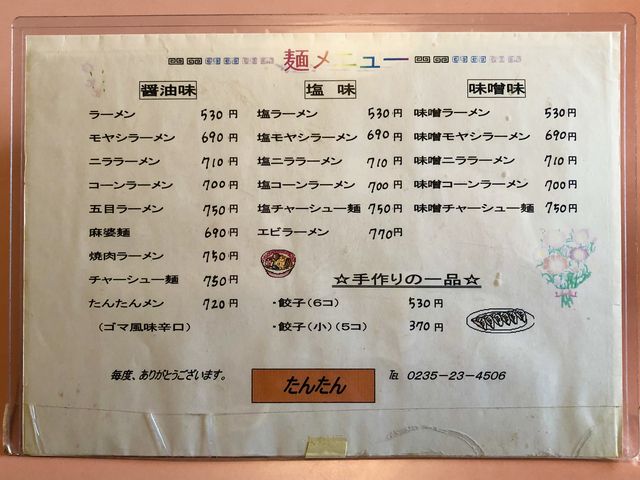 麺メニュー
醤油味
ラーメン 530円
モヤシラーメン 690円
ニララーメン 710円
コーンラーメン 700円
五目ラーメン 750円
麻婆麺 690円
焼肉ラーメン 750円
チャーシュー麺 750円
たんたんメン 720円
(ゴマ風味辛口)
塩味
塩ラーメン 530円
塩モヤシラーメン 690円
塩ニララーメン 710円
塩コーンラーメン 700円
塩チャーシュー麺 750円
エビラーメン 770円
味噌味
味噌ラーメン 530円
味噌モヤシラーメン 690円
味噌ニララーメン 710円
味噌コーンラーメン 700円
味噌チャーシュー麺 750円
☆手作りの一品☆
・餃子(6コ) 530円
・餃子(小)(5コ) 370円
毎度、ありがとうございます。
たんたん
℡ 0235-23-4506